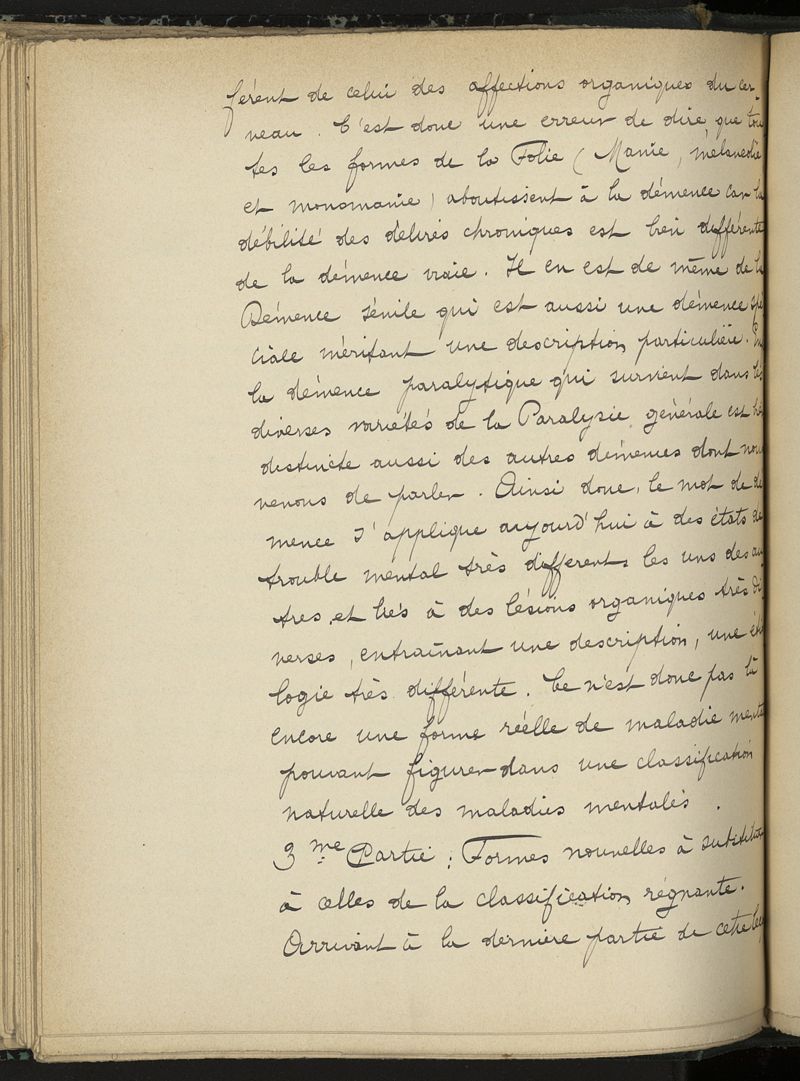 férent de celui des affections organiques du cer-
veau. C'est donc une erreur de dire, que tou
tes les formes de la Folie (Manie, mélancolie
et monomanie) aboutissent à la démence car la
débilité des délires chroniques est bien différente
de la démence vraie. Il en est de même de la
Démence sénile qui est aussi une démence spé
ciale méritant une description particulière.
la démence paralytique qui survient dans les
diverses variétés de la Paralysie générale est
distincte aussi des autres démences dont nous
venons de parler. Ainsi donc, le mot de dé
mence s'applique aujourd'hui à des états de
trouble mental très différents les uns des au
tres, et liés à des lésions organiques très di
verses, entraînant une description, une étio
logie très différente. Ce n'est donc pas là
encore une forme réelle de maladie menta
pouvant figurer dans une classification
naturelle des maladies mentales.
3me Partie : Formes nouvelles à substituer
à celles de la classification régnante.
Arrivant à la dernière partie de cette